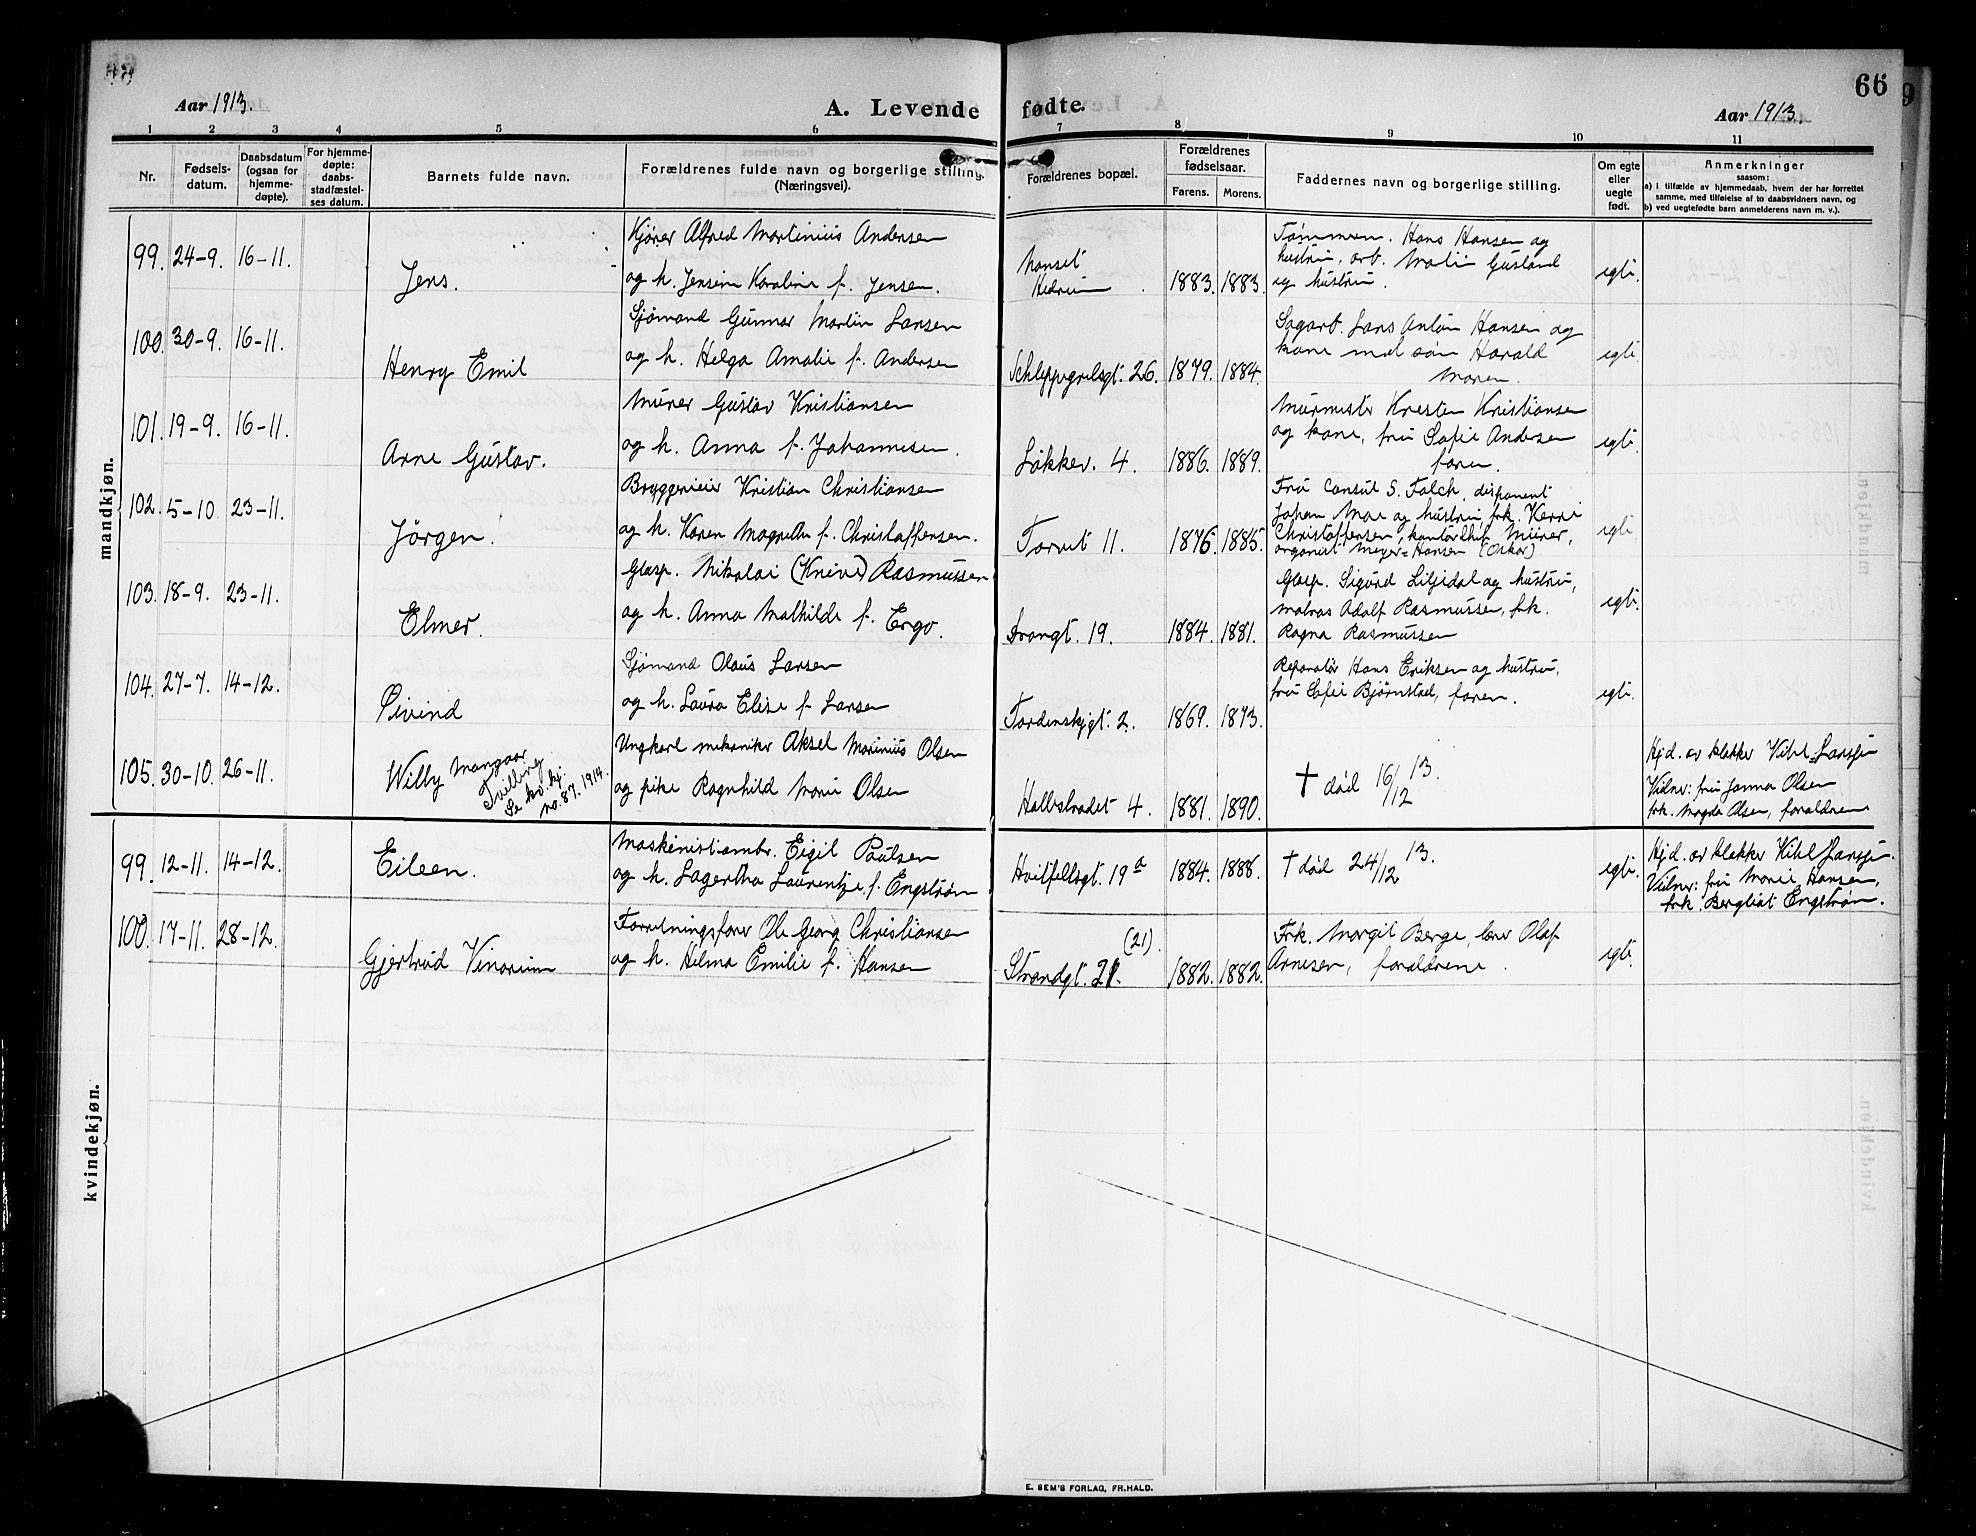 66
Aar 1913.
A. Levende fødte.
Aar 1913.
1 2 3 4 5 6 7 8 9 10 11
Nr.
Fødsels-
datum.
Daabsdatum
(ogsaa for
hjemme-
døpte).
For hjemme-
døpte:
daabs-
stadfæstel-
ses datum.
Barnets fulde navn.
Forældrenes fulde navn og borgerlige stilling.
(Næringsvei).
Forældrenes bopæl.
Forældrenes
fødselsaar.
Farens. Morens.
Faddernes navn og borgerlige stilling.
Om egte
eller
uegte
født.
Anmerkninger
saasom:
a) i tilfælde av hjemmedaab, hvem der har forrettet
samme, med tilføielse af to daabsvidners navn, og
b) ved uegtefødte barn anmelderens navn m. v.).
mandkjøn.
99. 24-9. 16-11.
Jens.
Kjører Alfred Martinius Andersen
og h. Jensine Karoline f. Jensen.
Nanset
Hedrum
1883. 1883.
Tømmerm. Hans Hansen og
hustru, arb. Martin Gusland
og hustru.
egte.
100. 30-9. 16-11.
Henry Emil
Sjømand Gunnar Martin Larsen
og h. Helga Amalie f. Andersen
Schleppegrelsgt. 26. 1879. 1884.
Sagarb. Lars Anton Hansen og
kone med søn Harald
moren.
egte
101. 19-9. 16-11.
Arne Gustav.
Murer Gustav Kristiansen
og h. Anna f. Johannesen.
Løkkev. 4. 1886. 1889.
Murmester Kresten Kristiansen
og kone, fru Sofie Andersen
faren.
egte.
102. 5-10 23-11.
Jörgen.
Bryggerieier Kristian Christiansen
og h. Karen Magrethe f. Christoffersen.
Torvet 11. 1876. 1885.
Fru Consul S. Falch, disponent
Johan Moe og hustru, frk. Kerri
Christoffersen, kontorchef Mürer,
organist Meyer=Hansen (Oskar)
egte
103. 18-9. 23-11.
Elmer.
Glasp. Nikolai (Kneive) Rasmussen
og h. Anna Mathilde f. Ergo.
Trangt. 19. 1884. 1881.
Glasp. Sigurd Liljedal og hustru,
matros Adolf Rasmussen, frk.
Ragna Rasmussen
egte.
104. 27-7. 14-12.
Øivind
Sjømand Olaus Larsen
og h. Laura Elise f. Larsen
Tordenskjgt. 2. 1869. 1873.
Reparatør Hans Eriksen og hustru,
fru Sofie Bjørnstad, faren.
egte.
105. 30-10. 26-11.
Willy Mangaar
Tvilling
Se kv. kj.
no. 87. 1914.
Ungkarl mekaniker Aksel Marinius Olsen
og pike Ragnhild Marie Olsen
Halbstradet 4. 1881. 1890.
† død 16/12 13.
Hjd. av klokker Vibe Larssen
Vidner: fru Janna Olsen
frk. Magda Olsen, forældrene
kvindekjøn.
99. 12-11. 14-12.
Eileen.
Maskinistiambr. Eigil Paulsen
og h. Lagertha Laurentze f. Engstrøm
Hvitfeldtsgt. 19a 1884. 1888.
† død 24/12 13.
egte.
Hjd. av klokker Vibe Larssen.
Vidner: fru Marie Hansen,
frk. Bergliot Engstrøm.
100. 17-11. 28-12.
Gjertrud Vinorum
Forretningsfører Ole Georg Christiansen
og h. Hilma Emilie f. Hansen
(21).
Strandgt. 21. 1882. 1882.
Frk. Margit Berge, lærer Olaf
Arnesen, forældrene.
egte.
E. SEM'S FORLAG, FR.HALD.